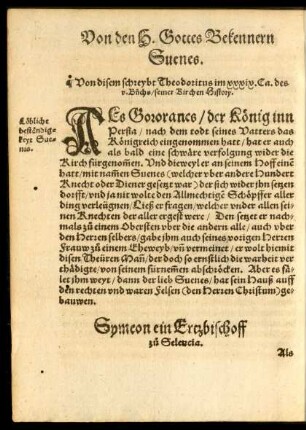 Von den H. Gottes Bekennern
Suenes.
¶ Von disem schreybt Theodoritus im xxxix. Ca. des
v. Bůchs/seiner Kirchen History.
Löbliche
beständig-
keyt Sue-
nis.
ALs Gororanes/der König inn
Persia/nach dem todt seines Vatters das
Königreich eingenommen hatt/hat er auch
als bald eine schwäre verfolgung wider die
Kirch fürgenom̃en. Vnd dieweyl er an seinem Hoff einẽ
hatt/mit nam̃en Suenes (welcher vber andere Hundert
Knecht oder Diener gesetzt war) der sich wider jhn setzen
dorfft/vnd ja nit wolt den Allmechtigẽ Schöpffer aller
ding verleügnen/Ließ er fragen/welcher vnder allen sei-
nen Knechten der aller ergest were/ Den setzet er nach-
mals zu einen Obersten vber die andern alle/auch vber
den Herren selbers/gabe jhm auch seines vorigen Herren
Frauw zů einem Eheweyb/vñ vermeinet/er wolt hiemit
disen Theüren Mañ/der doch so ernstlich die warheit ver
thädigte/von seinem fürnemẽn abschröcken. Aber es fä-
let jhm weyt/dann der lieb Suenes/hat sein Hauß auff
den rechten vnd waren Felsen (den Herren Christum) ge-
bauwen.
Symeon ein Ertzbischoff
zů Seleucia.
Als